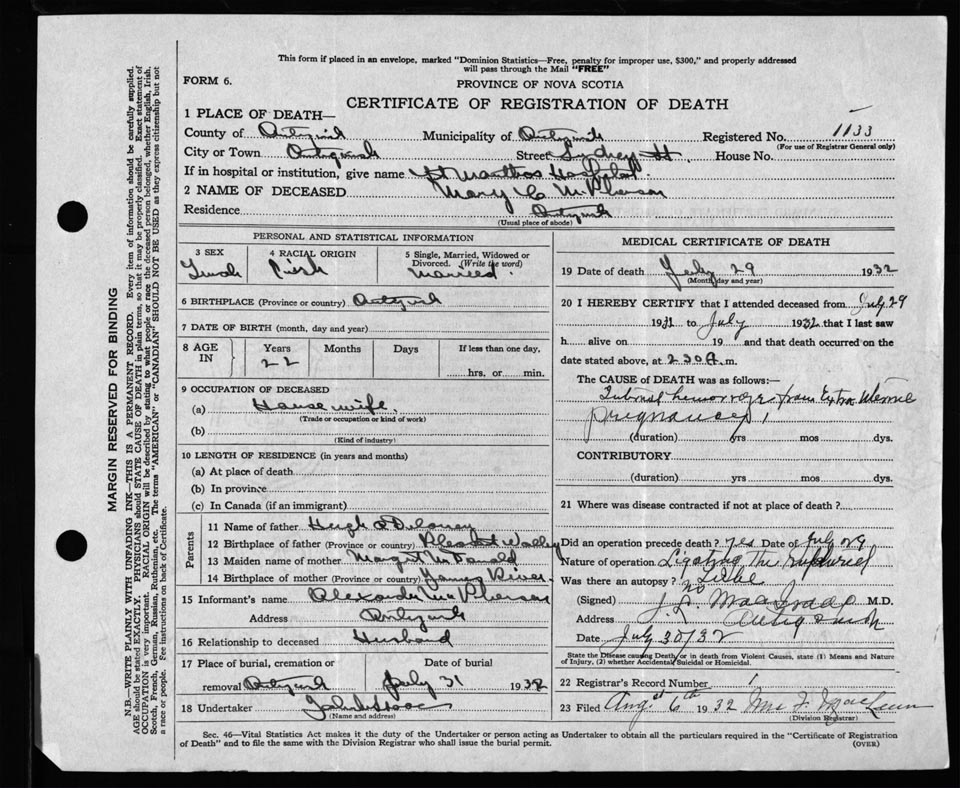 This form if placed in an envelope, marked "Dominion Statistics—Free, penalty for improper use, $300," and properly addressed
will pass through the Mail "FREE"
FORM 6.
PROVINCE OF NOVA SCOTIA
CERTIFICATE OF REGISTRATION OF DEATH
1 PLACE OF DEATH—
County of Antigonish Municipality of Antigonish Registered No. 1133
(For use of Registrar General only)
City or Town Antigonish Street Sydney St. House No.
If in hospital or institution, give name St Marthas Hospital.
2 NAME OF DECEASED Mary C McPherson
Residence Antigonish
(Usual place of abode)
PERSONAL AND STATISTICAL INFORMATION
3 SEX 4 RACIAL ORIGIN 5 Single, Married, Widowed or
Divorced. (Write the word)
Female Irish Married.
6 BIRTHPLACE (Province or country) Antigonish
7 DATE OF BIRTH (month, day and year)
8 AGE IN Years Months Days If less than one day,
22 hrs. or min.
9 OCCUPATION OF DECEASED
(a) House wife.
(Trade or occupation or kind of work)
(b)
(Kind of industry)
10 LENGTH OF RESIDENCE (in years and months)
(a) At place of death
(b) In province
(c) In Canada (if an immigrant)
Parents
11 Name of father Hugh Delaney
12 Birthplace of father (Province or country) Pleasant Valley
13 Maiden name of mother Margt McDonald
14 Birthplace of mother (Province or country) James River
15 Informant's name Alexander McPherson
Address Antigonish
16 Relationship to deceased Husband
17 Place of burial, cremation or Date of burial
removal Antigonish July 31 1932
18 Undertaker
(Name and address)
MEDICAL CERTIFICATE OF DEATH
19 Date of death July 29 1932
(Month, day and year)
20 I HEREBY CERTIFY that I attended deceased from July 29
1932 to July 1932 that I last saw
h alive on 19 and that death occurred on the
date stated above, at 2 30 A. m.
The CAUSE of DEATH was as follows:
Internal hemorrage from Extra Uterine
pregnancy
(duration) yrs mos dys.
CONTRIBUTORY
(duration) yrs mos dys.
21 Where was disease contracted if not at place of death?
Did an operation precede death? yes Date of July 29
Nature of operation Ligating the ruptured
Tube
Was there an autopsy? no
(Signed) M.D.
Address Antigonish
Date July 30/32
State the Disease causing Death, or in death from Violent Causes, state (1) Means and Nature
of Injury, (2) whether Accidental, Suicidal or Homicidal.
22 Registrar's Record Number 1
23 Filed Aug. 6th 1932 Mrs F. MacLean
(Division Registrar)
Sec. 46—Vital Statistics Act makes it the duty of the Undertaker or person acting as Undertaker to obtain all the particulars required in the "Certificate of Registration
of Death" and to file the same with the Division Registrar who shall issue the burial permit. (OVER)
MARGIN RESERVED FOR BINDING
N.B.—WRITE PLAINLY WITH UNFADING INK—THIS IS A PERMANENT RECORD. Every item of information should be carefully supplied.
AGE should be stated EXACTLY. PHYSICIANS should STATE CAUSE OF DEATH in plain terms, so that it may be properly classified. Exact statement of
OCCUPATION is very important. RACIAL ORIGIN will be described by stating to what people or race the deceased person belonged, whether English, Irish,
Scotch, French, German, Russian, Ruthenian, etc. The terms "AMERICAN" or "CANADIAN" SHOULD NOT BE USED as they express citizenship but not
a race or people. See instructions on back of Certificate.